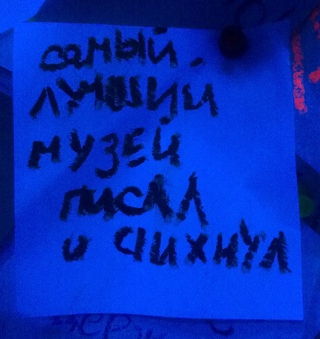 самый
лучший
музей
писал
и чихнул